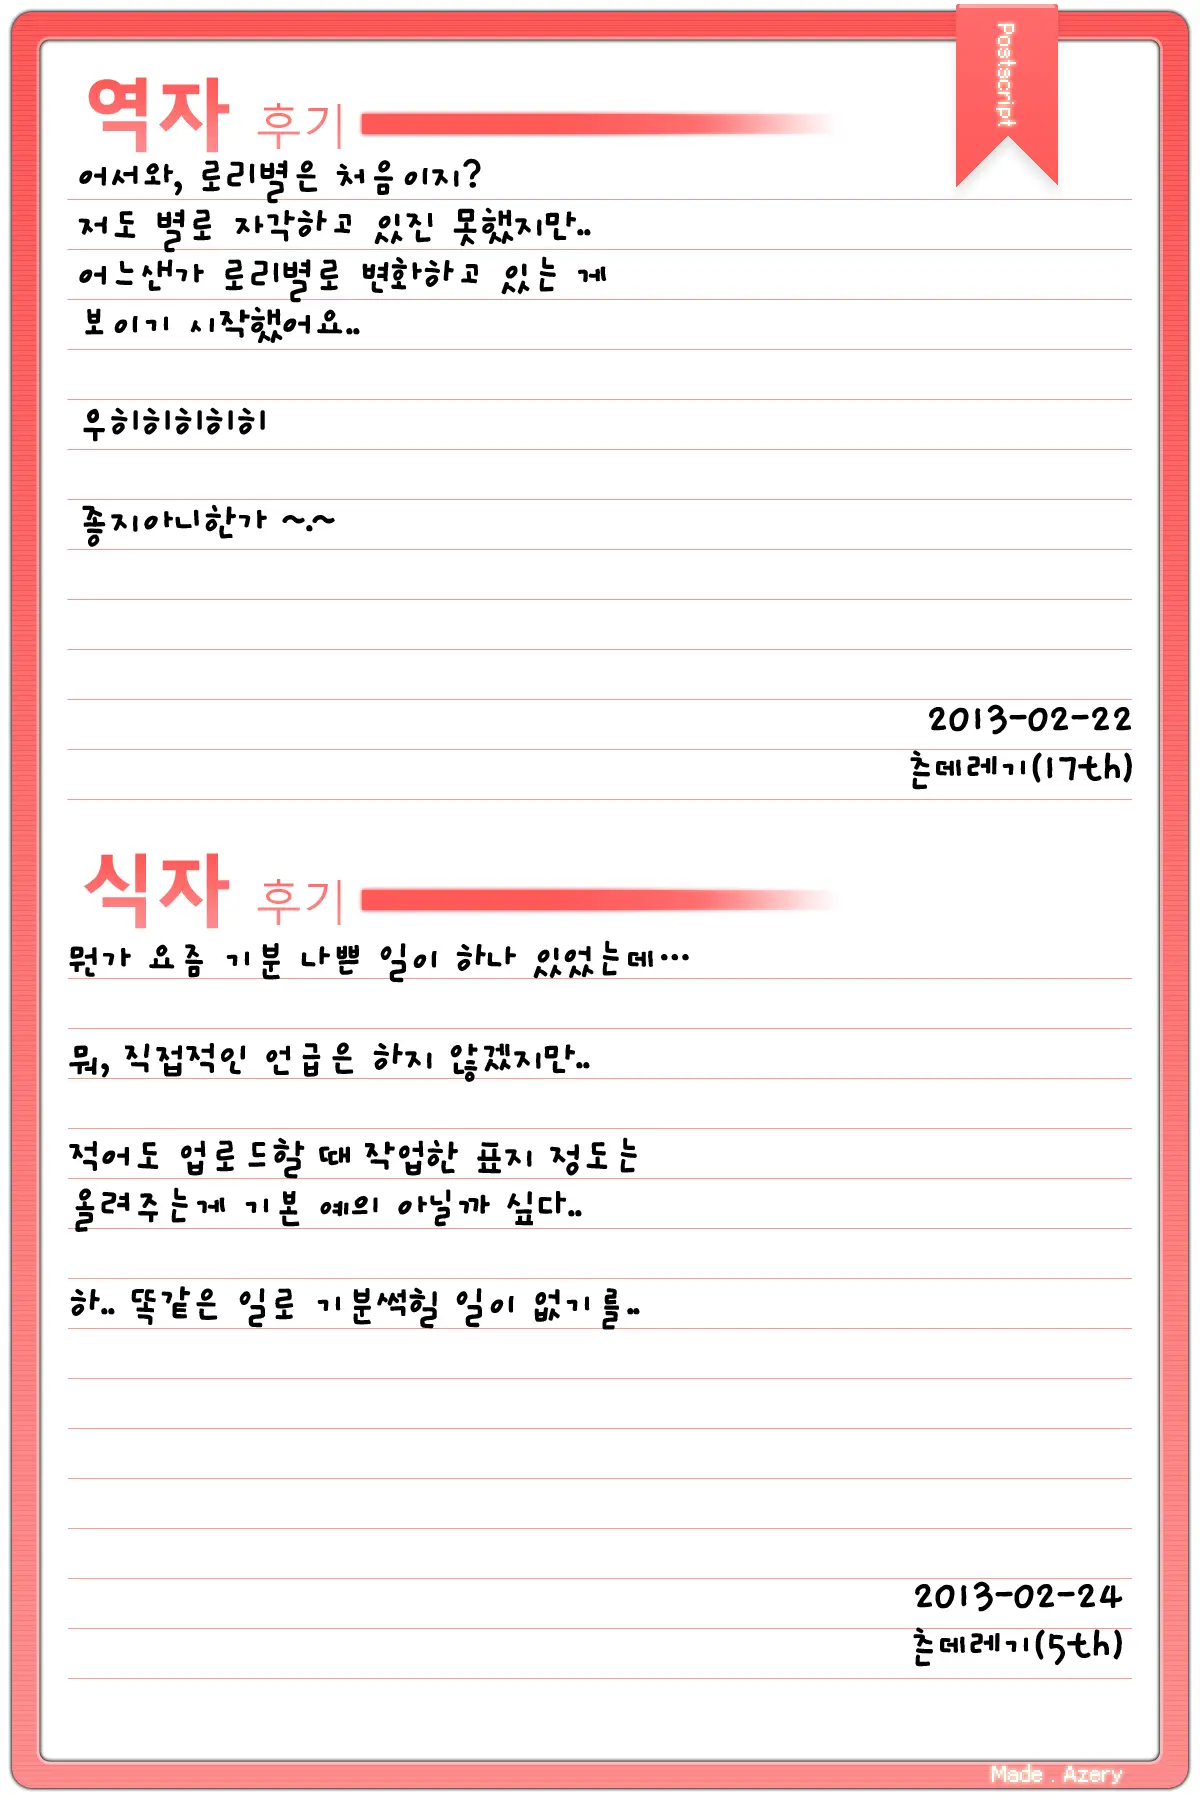 Postscript
역자 후기
어서와, 로리별은 처음이지?
저도 별로 자각하고 있진 못했지만..
어느샌가 로리별로 변화하고 있는 게
보이기 시작했어요..
우히히히히히
좋지아니한가 ~.~
2013-02-22
츤데레기(17th)
식자 후기
뭔가 요즘 기분 나쁜 일이 하나 있었는데…
뭐, 직접적인 언급은 하지 않겠지만..
적어도 업로드할 때 작업한 표지 정도는
올려주는게 기본 예의 아닐까 싶다..
하.. 똑같은 일로 기분썩힐 일이 없기를..
2013-02-24
츤데레기(5th)
Made . Azery